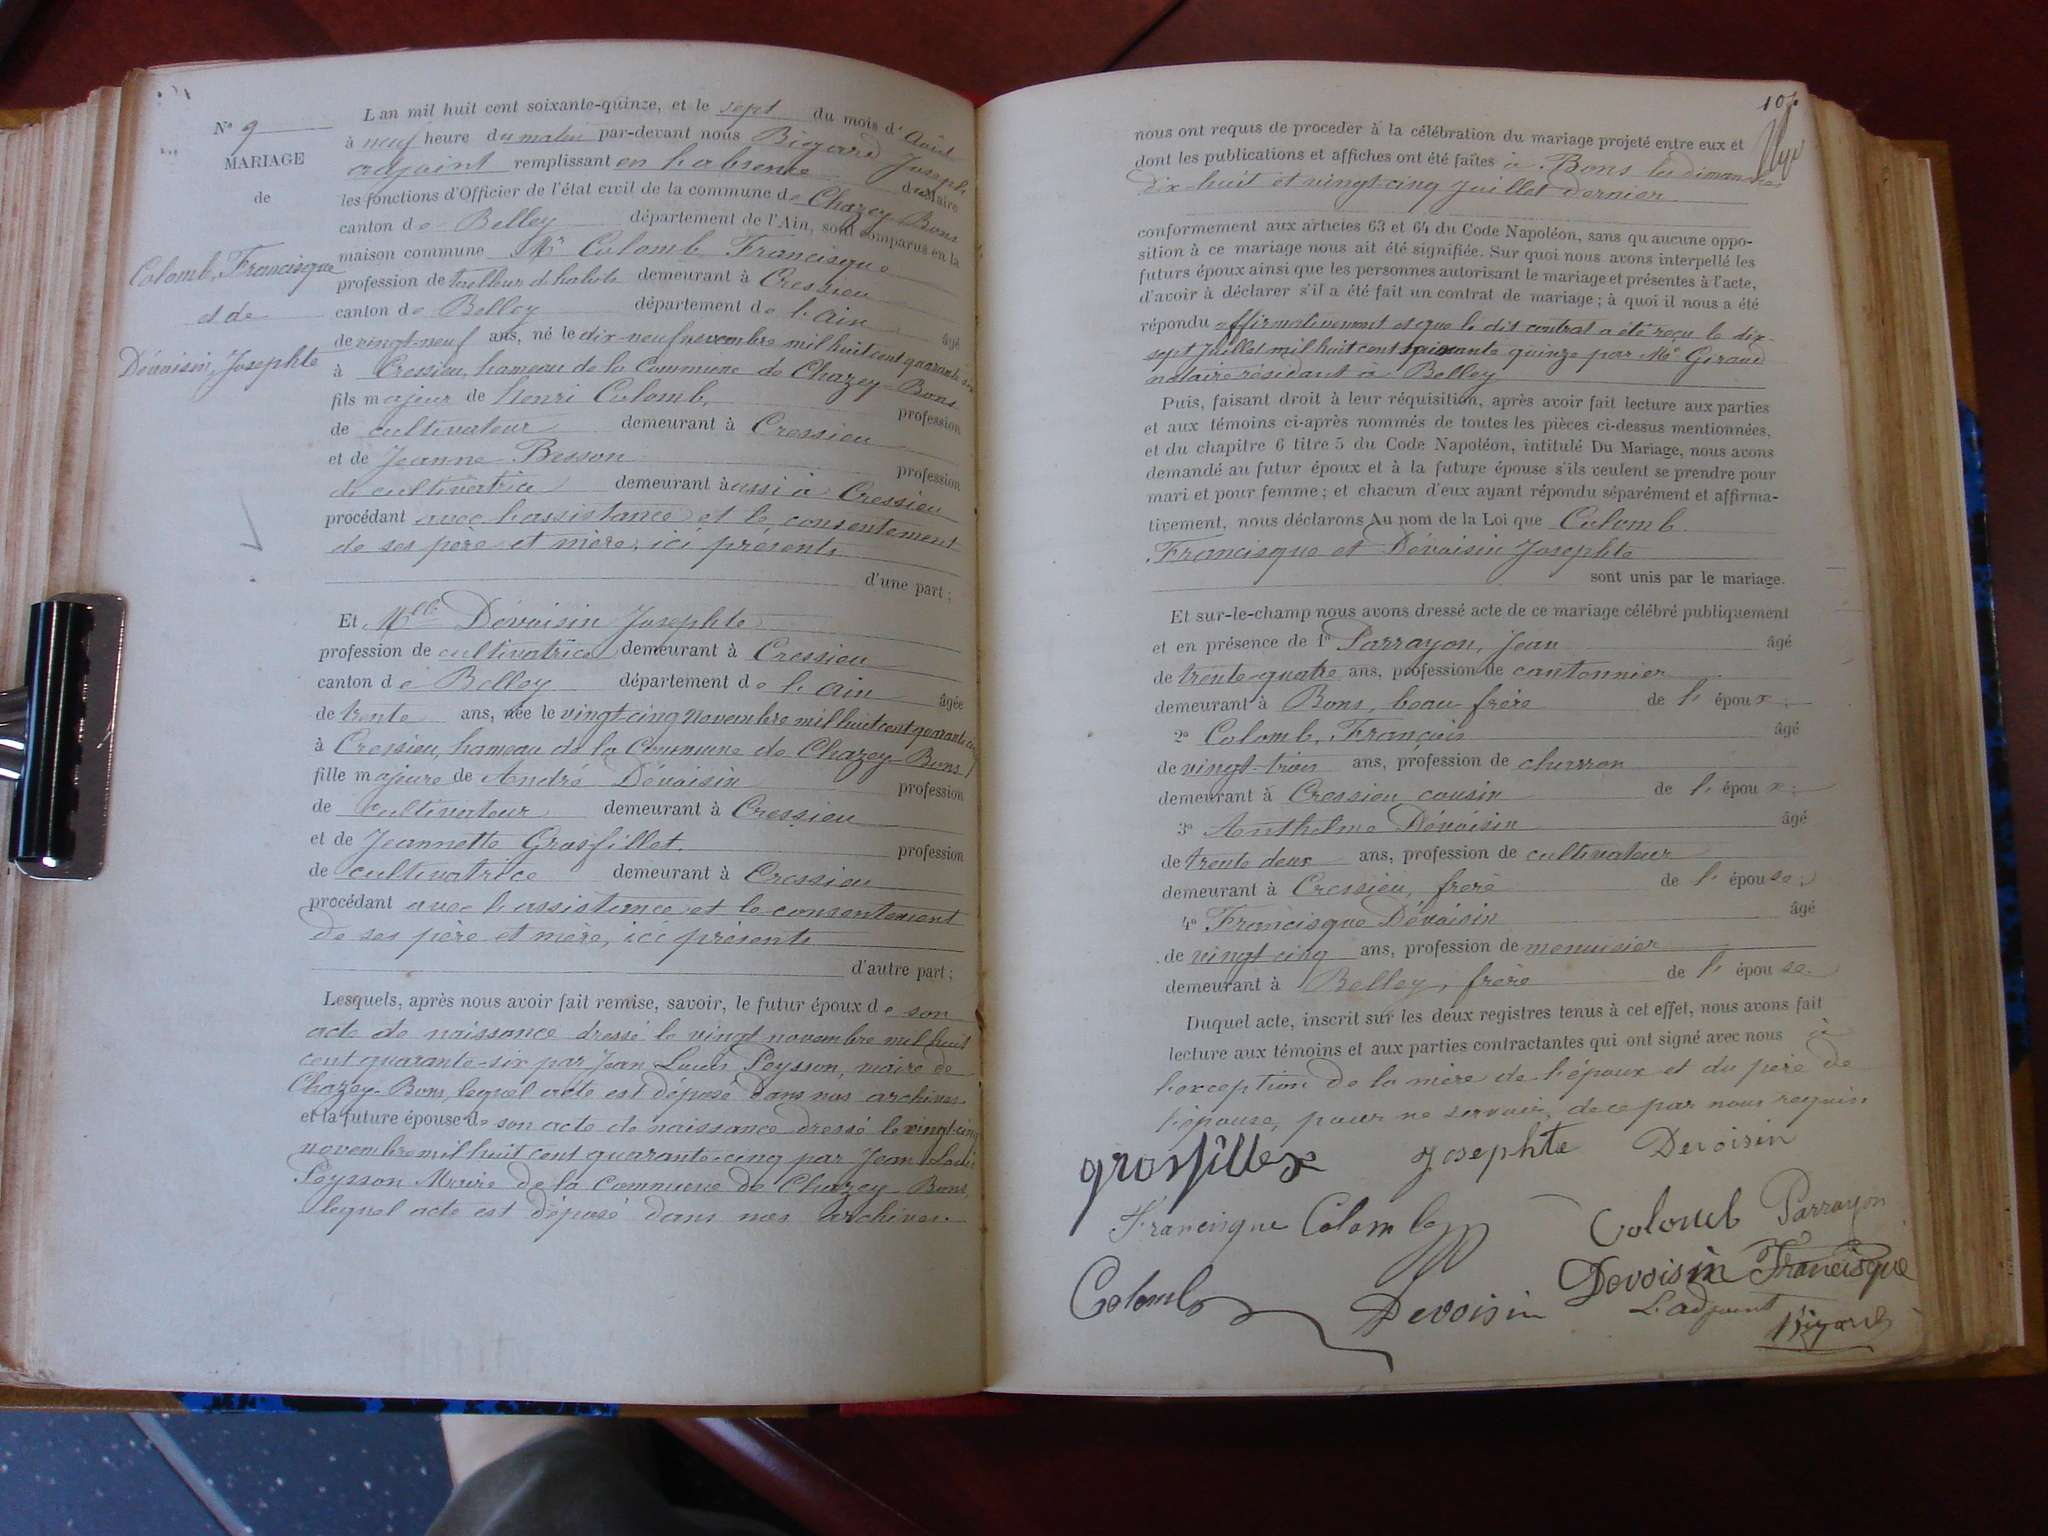 N° 9
MARIAGE
de
Colomb, Francisque
et de
Dévoisin, Josephte
L'an mil huit cent soixante-quinze, et le sept du mois d'Août
à neuf heure du matin par-devant nous Bigard Joseph
adjoint remplissant en l'absence du Maire
les fonctions d'Officier de l'état civil de la commune de Chazey-Bons
canton de Belley département de l'Ain, sont comparus en la
maison commune Mr Colomb Francisque
profession de tailleur d'habits demeurant à Cressieu
canton de Belley département de l'Ain âgé
de vingt-neuf ans, né le dix-neuf novembre mil huit cent quarante-six
à Cressieu, hameau de la Commune de Chazey-Bons
fils majeur de Henri Colomb, profession
de cultivateur demeurant à Cressieu
et de Jeanne Besson profession
de cultivatrice demeurant aussi à Cressieu
procédant avec l'assistance et le consentement
de ses père et mère, ici présents
d'une part ;
Et Mlle Dévoisin Josephte
profession de cultivatrice demeurant à Cressieu
canton de Belley département de l'Ain âgée
de trente ans, née le vingt-cinq novembre mil huit cent quarante cinq
à Cressieu, hameau de la Commune de Chazey-Bons
fille majeure de André Dévoisin profession
de cultivateur demeurant à Cressieu
et de Jeannette Grosfillet. profession
de cultivatrice demeurant à Cressieu
procédant avec l'assistance et le consentement
de ses père et mère, ici présents
d'autre part ;
Lesquels, après nous avoir fait remise, savoir, le futur époux de son
acte de naissance dressé le vingt novembre mil huit
cent quarante-six par Jean Louis Peysson, maire de
Chazey-Bons, lequel acte est déposé dans nos archives
et la future épouse de son acte de naissance dressé le vingt-cinq
novembre mil huit cent quarante-cinq par Jean Louis
Peysson Maire de la Commune de Chazey-Bons,
lequel acte est déposé dans nos archives.
nous ont requis de proceder à la célébration du mariage projeté entre eux et
dont les publications et affiches ont été faites à Bons les dimanches
dix-huit et vingt-cinq juillet dernier
conformement aux articles 63 et 64 du Code Napoléon, sans qu'aucune oppo-
sition à ce mariage nous ait été signifiée. Sur quoi nous avons interpellé les
futurs époux ainsi que les personnes autorisant le mariage et présentes à l'acte,
d'avoir à déclarer s'il a été fait un contrat de mariage ; à quoi il nous a été
répondu affirmativement et que le dit contrat a été reçu le dix-
sept juillet mil huit cent soixante quinze par Me Giraud
notaire résidant à Belley
Puis, faisant droit à leur réquisition, après avoir fait lecture aux parties
et aux témoins ci-après nommés de toutes les pièces ci-dessus mentionnées,
et du chapitre 6 titre 5 du Code Napoléon, intitulé Du Mariage, nous avons
demandé au futur époux et à la future épouse s'ils veulent se prendre pour
mari et pour femme ; et chacun d'eux ayant répondu séparément et affirma-
tivement, nous déclarons Au nom de la Loi que Colomb
Francisque et Dévoisin Josephte
sont unis par le mariage.
Et sur-le-champ nous avons dressé acte de ce mariage célébré publiquement
et en présence de 1° Parrayon, Jean âgé
de trente-quatre ans, profession de cantonnier
demeurant à Bons, beau-frère de l'époux ;
2° Colomb, François âgé
de vingt-trois ans, profession de charron
demeurant à Cressieu cousin de l'époux ;
3° Anthelme Dévoisin âgé
de trente deux ans, profession de cultivateur
demeurant à Cressieu, frère de l'épouse ;
4° Francisque Dévoisin âgé
de vingt cinq ans, profession de menuisier
demeurant à Belley, frère de l'épouse.
Duquel acte, inscrit sur les deux registres tenus à cet effet, nous avons fait
lecture aux témoins et aux parties contractantes qui ont signé avec nous à
l'exception de la mère de l'époux et du père de
l'épouse, pour ne savoir, de ce par nous requis
grosfillex Josephte Devoisin
Francisque Colomb Colomb Parrayon
Colomb Devoisin Devoisin Francisque
L'adjoint
Bigard